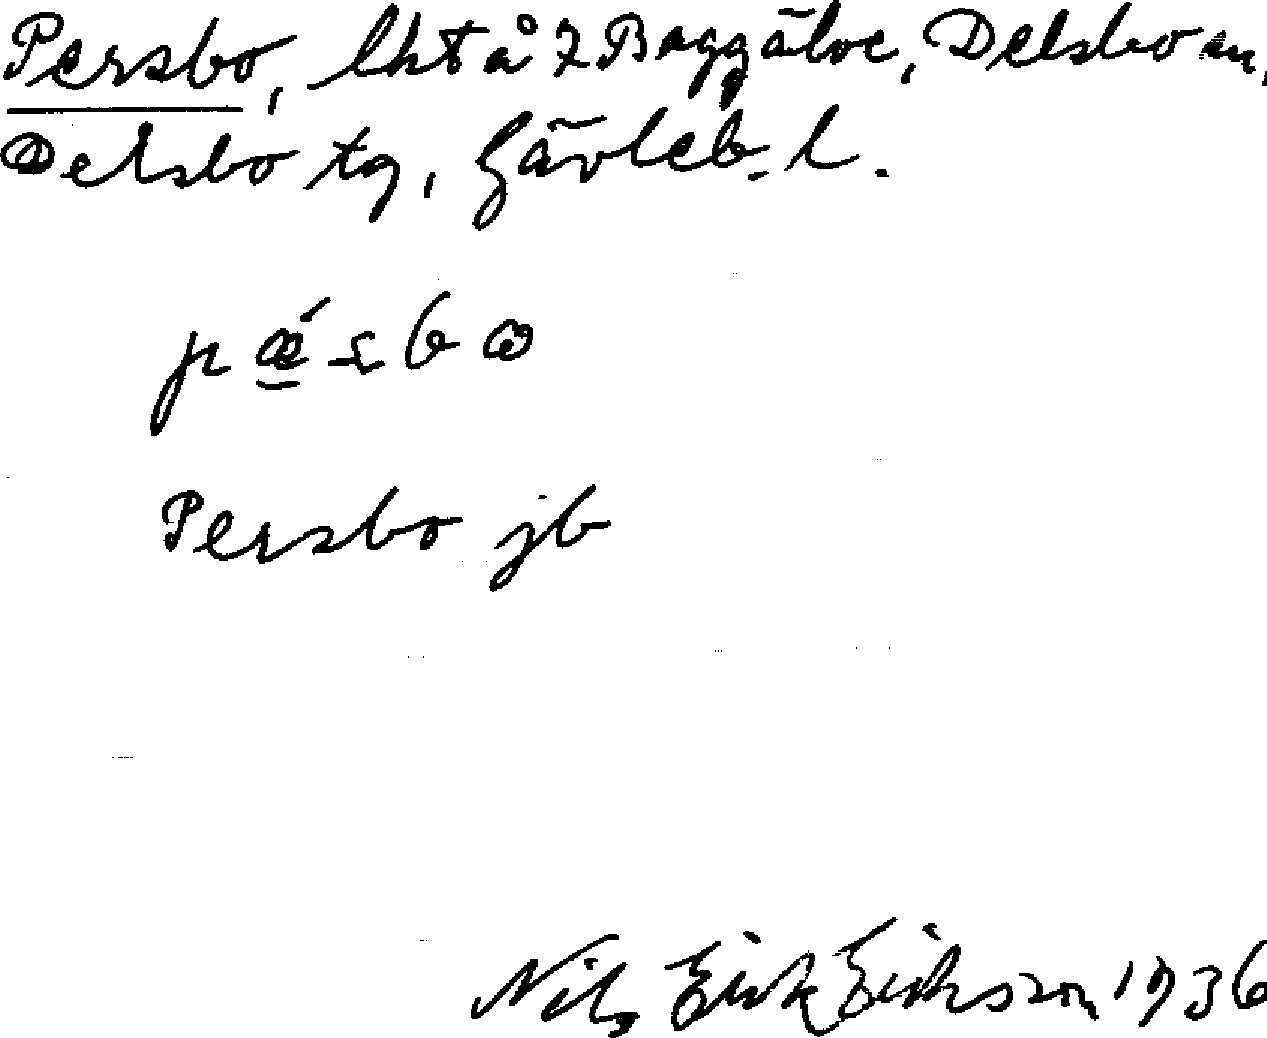 Persbo, lht å 7 Baggälve, Delsbo sn,
Delsbo tg, Gävleb. l.
pǽsbω
Persbo jb
Nils Erik Eriksson 1936